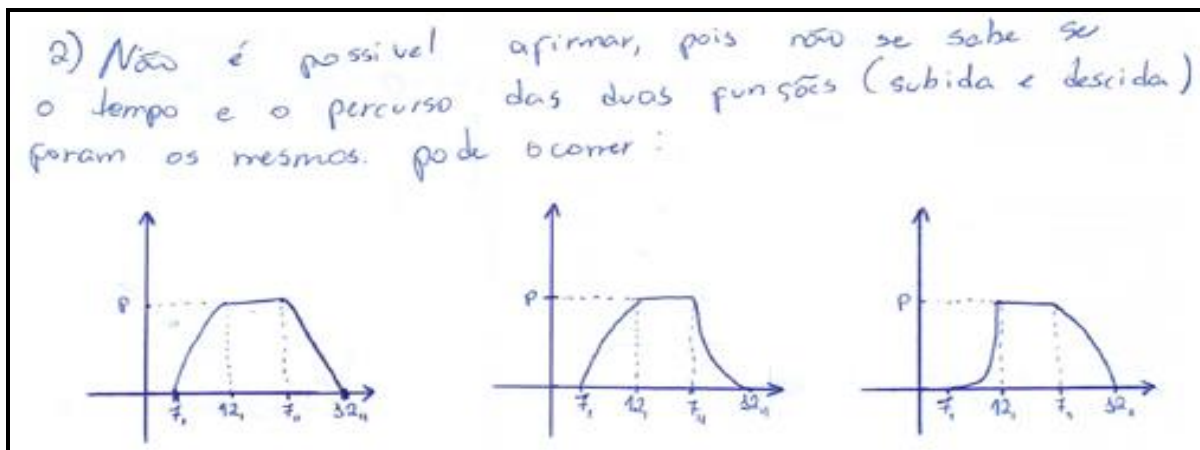 2) Não é possivel afirmar, pois não se sabe se
o tempo e o percurso das duas funções (subida e descida)
foram os mesmos. pode ocorrer:
P
7, 12, 7,, 12,,
P
7, 12, 7,, 12,,
P
7, 12, 7,, 12,,